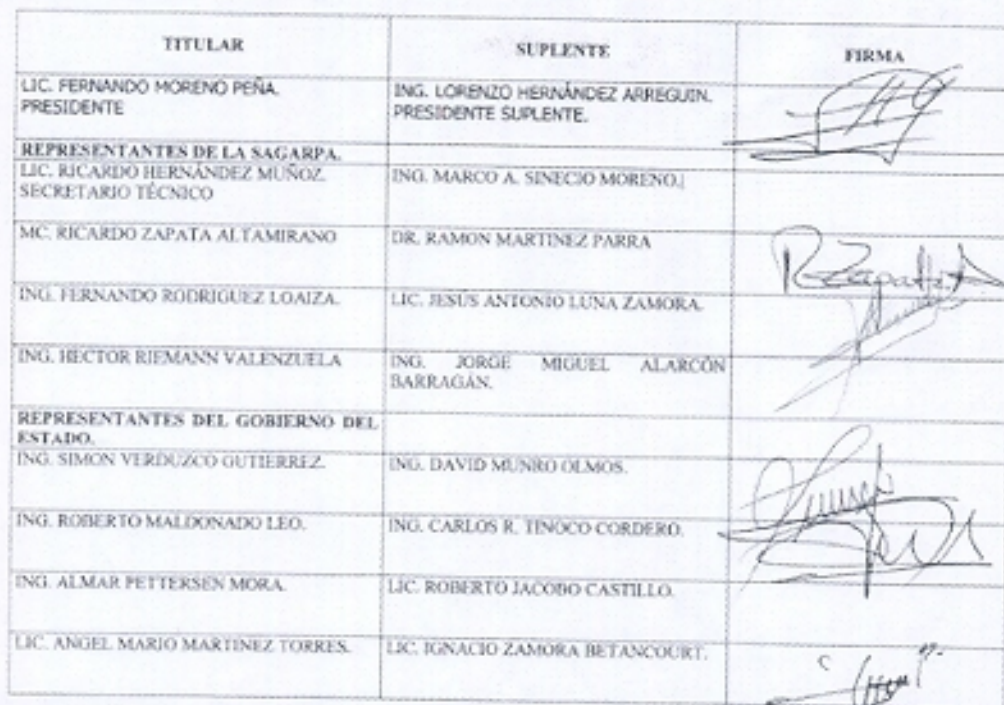 TITULAR SUPLENTE FIRMA
LIC. FERNANDO MORENO PEÑA. ING. LORENZO HERNÁNDEZ ARREGUIN.
PRESIDENTE PRESIDENTE SUPLENTE.
REPRESENTANTES DE LA SAGARPA.
LIC. RICARDO HERNÁNDEZ MUÑOZ. ING. MARCO A. SINECIO MORENO.
SECRETARIO TÉCNICO
MC. RICARDO ZAPATA ALTAMIRANO DR. RAMON MARTINEZ PARRA
RZapata
ING. FERNANDO RODRIGUEZ LOAIZA. LIC. JESÚS ANTONIO LUNA ZAMORA.
ING. HECTOR RIEMANN VALENZUELA ING. JORGE MIGUEL ALARCÓN
BARRAGÁN.
REPRESENTANTES DEL GOBIERNO DEL
ESTADO.
ING. SIMON VERDUZCO GUTIERREZ. ING. DAVID MUNRO OLMOS.
ING. ROBERTO MALDONADO LEO. ING. CARLOS R. TINOCO CORDERO.
ING. ALMAR PETTERSEN MORA. LIC. ROBERTO JACOBO CASTILLO.
LIC. ANGEL MARIO MARTINEZ TORRES. LIC. IGNACIO ZAMORA BETANCOURT.